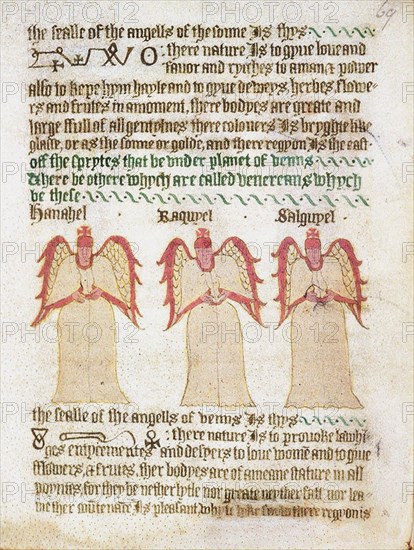 69
the sealle of the angells of the sonne Is thys
O : there nature Is to gyue loue and
fauor and ryches to a man & power
also to kepe hym hayle and to gyue deweys, herbes, flowe
rs and frutes in a moment, there bodyes are greate and
large ffull of all gentylnes there colouer Is bryghte like
glasse, or as the sonne or golde, and there regyon Is the east
off the sprytes that be under planet of venus
& there be othere whych are called venereans whych
be these
Hanahel Raquyel Salguyel
the sealle of the angells of venus Is thys
: there nature Is to prouoke
and desyers to loue women and to gyue
fflowers, & frutes, ther bodyes are of a meane stature in all
poyntes, for they be nether lytle nor greate neyther fatt nor lea
ne ther nature Is pleasant whyte lyke there regyon is
PHOTO12